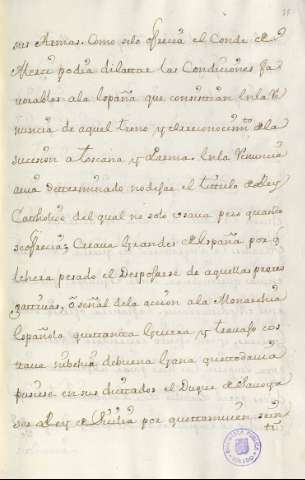 sus Armas. Como solo ofrecia el Conde de
podia dilatar las Condiciones fa
vorables ala España que consistian en la Re
nuncia de aquel treno y el reconocimto dela
sucesion a toscana y Parma. En la Renuncia
avia determinado no dejar el titulo de Rey
Catholico del qual no solo usava pero quando
se ofrecia, Creava Grandes de España por q
le era pesado el Despojarse de aquellas
ô señal dela accion ala Monarchia
Española que tanta Guerra y travajo cos
tava de buena Gana que todavia
pusiese en sus dictados el Duque de Savoya
ser Rey de por que tambien